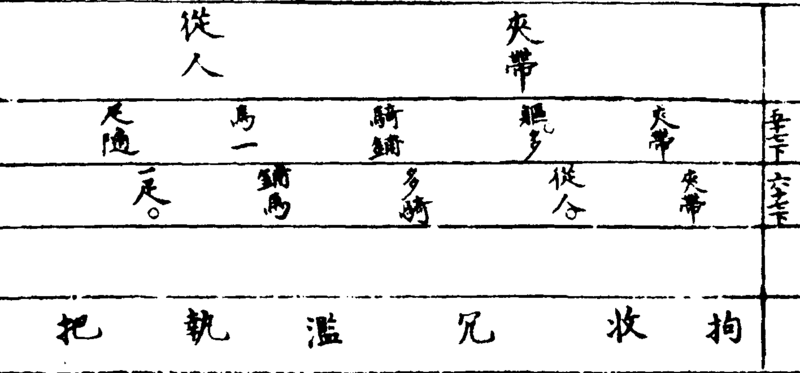 夾帶 從人
五十七下 夾帶 軀多 騎鋪 馬一 疋隨
六十七下 夾帶 從人 多騎 鋪馬 一疋。
拘 收 冗 濫 執 把